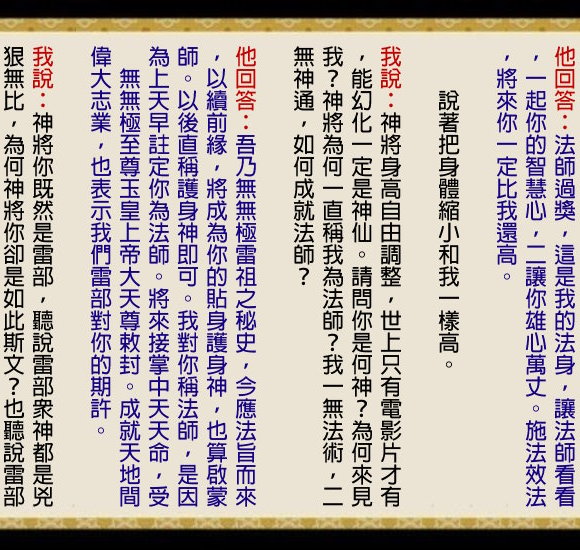 他回答：法師過獎，這是我的法身，讓法師看看
，一起你的智慧心，二讓你雄心萬丈。施法效法
，將來你一定比我還高。
說著把身體縮小和我一樣高。
我說：神將身高自由調整，世上只有電影片才有
，能幻化一定是神仙。請問你是何神？為何來見
我？神將為何一直稱我為法師？我一無法術，二
無神通，如何成就法師？
他回答：吾乃無無極雷祖之秘史，今應法旨而來
，以續前緣，將成為你的貼身護身神，也算啟蒙
師。以後直稱護身神即可。我對你稱法師，是因
為上天早註定你為法師。將來接掌中天天命，受
無無極至尊玉皇上帝大天尊敕封。成就天地間
偉大志業，也表示我們雷部對你的期許。
我說：神將你既然是雷部，聽說雷部衆神都是兇
狠無比，為何神將你卻是如此斯文？也聽說雷部